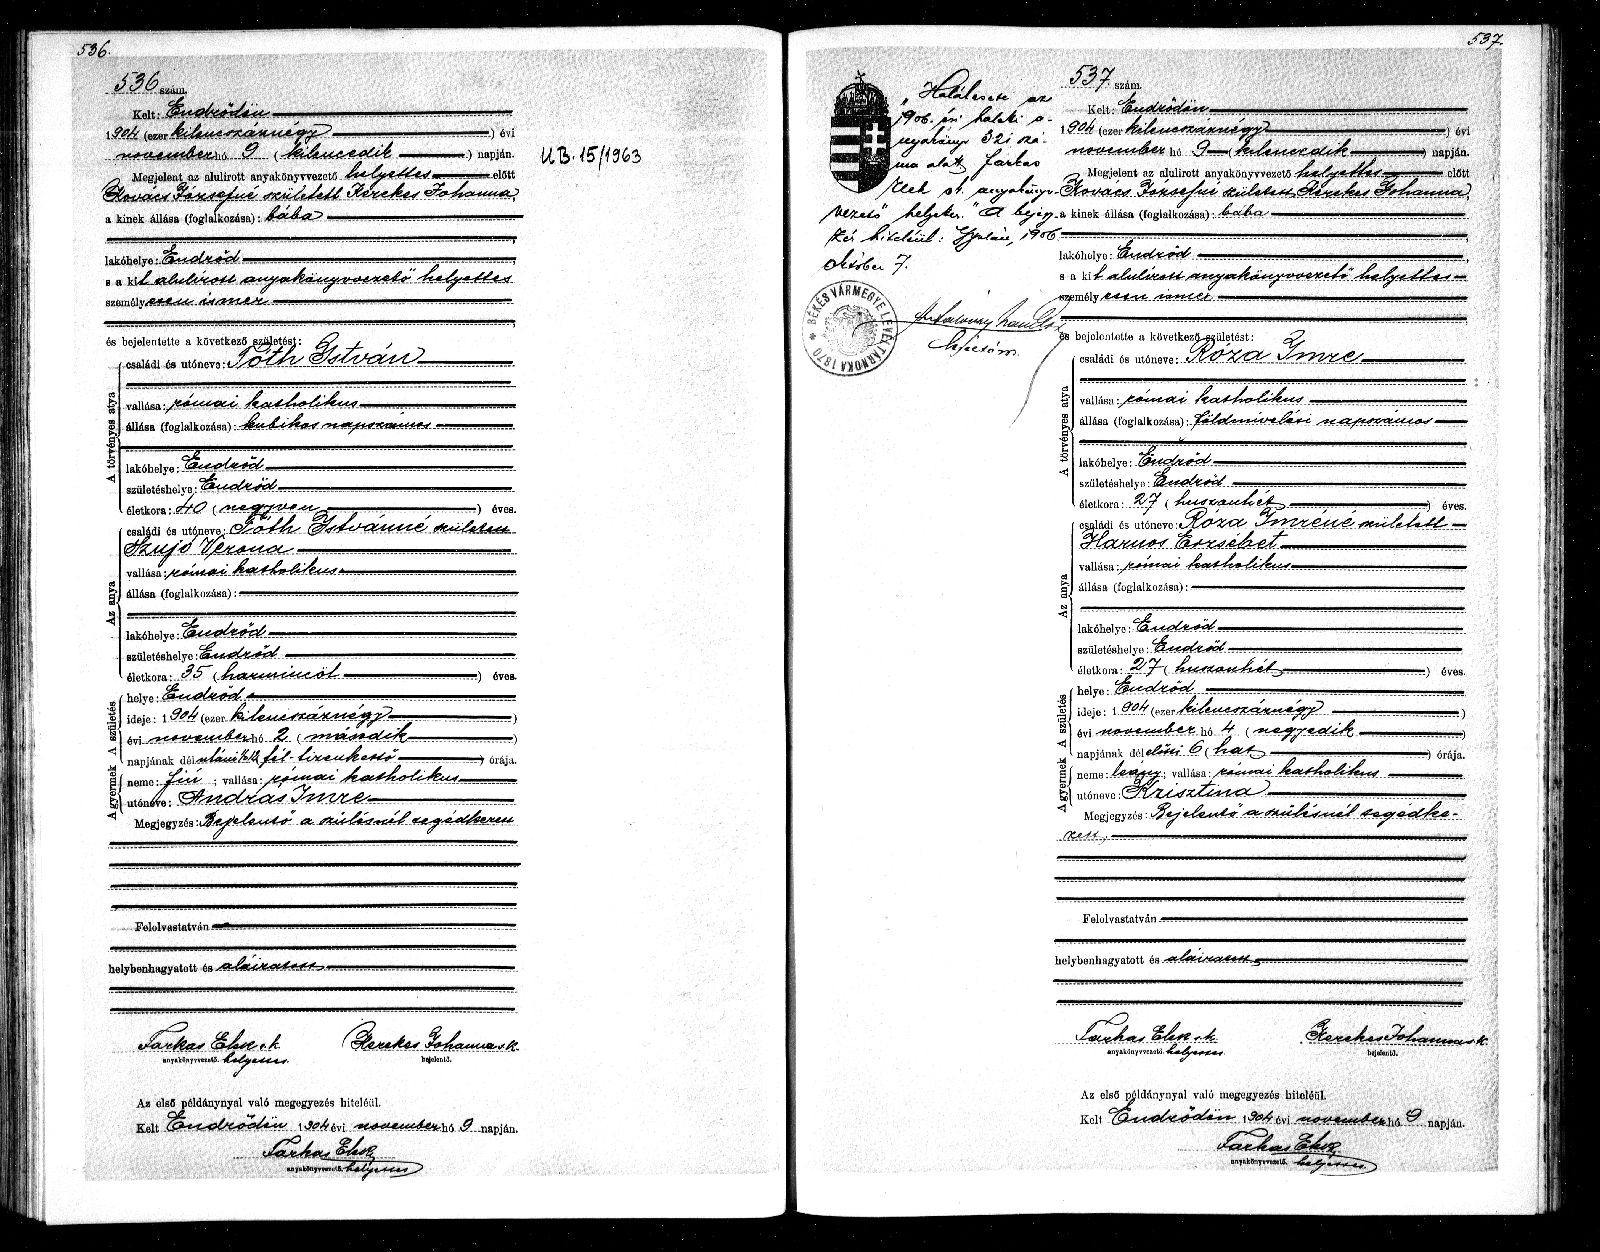 536.
536 szám.
Kelt: Endrődön
1904 (ezer kilenczszáznégy) évi
november hó 9 (kilenczedik) napján.
Megjelent az alulirott anyakönyvvezető helyettes előtt
Kovács Józsefné született Kerekes Johanna,
a kinek állása (foglalkozása): bába
lakóhelye: Endrőd
s a kit alulirott anyakönyvvezető helyettes
személyesen ismer
és bejelentette a következő születést:
A törvényes atya
családi és utóneve: Tóth István
vallása: római katholikus
állása (foglalkozása): kubikos napszámos
lakóhelye: Endrőd
születéshelye: Endrőd
életkora: 40 (negyven) éves.
Az anya
családi és utóneve: Tóth Istvánné született
Szujó Verona
vallása: római katholikus
állása (foglalkozása):
lakóhelye: Endrőd
születéshelye: Endrőd
életkora: 35 (harminczöt) éves.
A születés
helye: Endrőd
ideje: 1904 (ezer kilenczszáznégy)
évi november hó 2 (második)
napjának délutáni ½12 fél-tizenkettő) órája.
A gyermek
neme: fiú; vallása: római katholikus
utóneve: András Imre
Megjegyzés: Bejelentő a szülésnél segédkezett
Felolvastatván
helybenhagyatott és aláiratott
Farkas Elek s. k. Kerekes Johanna s. k.
anyakönyvvezető helyettes. bejelentő.
Az első példánynyal való megegyezés hiteléül.
Kelt Endrődön 1904 évi november hó 9 napján.
Farkas Elek
anyakönyvvezető helyettes
UB. 15/1963
537.
„Halálesete az
1906. évi halotti a-
nyakönyv 32i szá-
ma alatt, Farkas
Elek s. k. anyakönyv-
vezető helyettes." A bejegy-
zés hiteléül: Gyulán, 1906
október 7.
BÉKÉS VÁRMEGYE LEVÉLTÁRNOKA 1870
537 szám.
Kelt: Endrődön
1904 (ezer kilenczszáznégy) évi
november hó 9 (kilenczedik) napján.
Megjelent az alulirott anyakönyvvezető helyettes előtt
Kovács Józsefné született Kerekes Johanna,
a kinek állása (foglalkozása): bába
lakóhelye: Endrőd
s a kit alulirott anyakönyvvezető helyettes
személyesen ismer
és bejelentette a következő születést:
A törvényes atya
családi és utóneve: Róza Imre
vallása: római katholikus
állása (foglalkozása): földmivelési napszámos
lakóhelye: Endrőd
születéshelye: Endrőd
életkora: 27 (huszonhét) éves.
Az anya
családi és utóneve: Róza Imréné született
Harnos Erzsébet
vallása: római katholikus
állása (foglalkozása):
lakóhelye: Endrőd
születéshelye: Endrőd
életkora: 27 (huszonhét) éves.
A születés
helye: Endrőd
ideje: 1904 (ezer kilenczszáznégy)
évi november hó 4 (negyedik)
napjának délelőtti 6 (hat) órája.
A gyermek
neme: leány; vallása: római katholikus
utóneve: Krisztina
Megjegyzés: Bejelentő a szülésnél segédke-
zett.
Felolvastatván
helybenhagyatott és aláiratott
Farkas Elek s. k. Kerekes Johanna s. k.
anyakönyvvezető helyettes bejelentő.
Az első példánynyal való megegyezés hiteléül.
Kelt Endrődön 1904 évi november hó 9 napján.
Farkas Elek
anyakönyvvezető helyettes